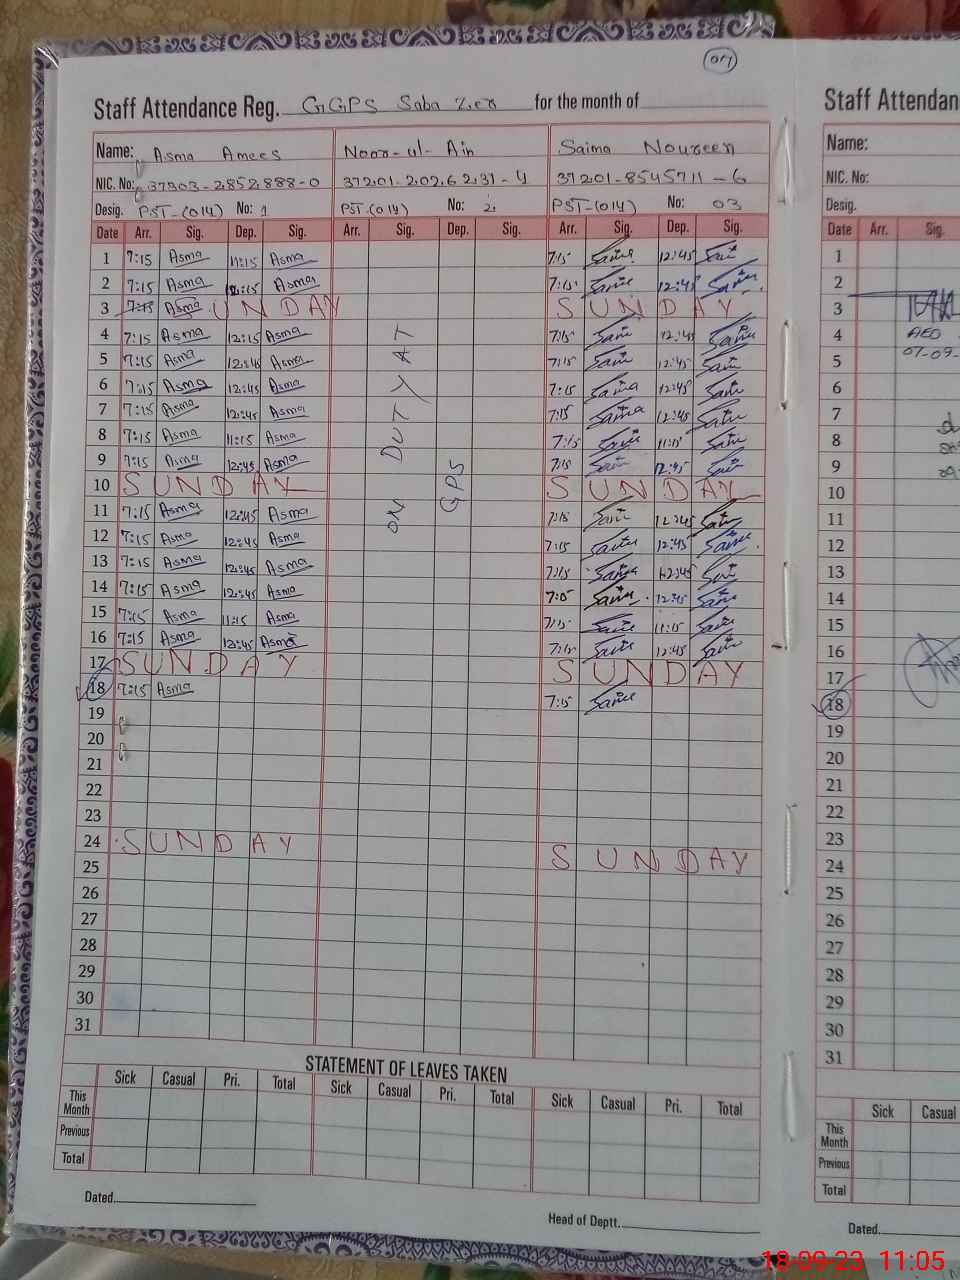 017
Staff Attendance Reg. GGPS Saba Zer for the month of
Name: Asma Amees Noor-ul-Ain Saima Noureen
NIC. No: 37303-2852888-0 37201-2026231-4 37201-8545711-6
Desig. PST-(014) No: 1 PST-(014) No: 2 PST-(014) No: 03
Date Arr. Sig. Dep. Sig. Arr. Sig. Dep. Sig. Arr. Sig. Dep. Sig.
1 7:15 Asma 11:15 Asma 7:15 12:45
2 7:15 Asma 12:15 Asma 7:15 12:45
3 7:15 Asma UNDAY SUNDAY
4 7:15 Asma 12:15 Asma 7:15 12:45
5 7:15 Asma 12:45 Asma 7:15 12:45
6 7:15 Asma 12:45 Asma 7:15 12:45
7 7:15 Asma 12:45 Asma 7:15 12:45
8 7:15 Asma 11:15 Asma 7:15 11:15
9 7:15 Asma 12:45 Asma 7:15 12:45
10 SUNDAY SUNDAY
11 7:15 Asma 12:45 Asma 7:15 12:45
12 7:15 Asma 12:45 Asma 7:15 12:45
13 7:15 Asma 12:45 Asma 7:15 12:45
14 7:15 Asma 12:45 Asma 7:15 12:45
15 7:15 Asma 11:15 Asma 7:15 11:15
16 7:15 Asma 12:45 Asma 7:15 12:45
17 SUNDAY SUNDAY
18 7:15 Asma 7:15
19
20
21
22
23
24 SUNDAY SUNDAY
25
26
27
28
29
30
31
ON DUTY AT
GPS
STATEMENT OF LEAVES TAKEN
Sick Casual Pri. Total Sick Casual Pri. Total Sick Casual Pri. Total
This Month
Previous
Total
Dated.
Head of Deptt.
Staff Attendan
Name:
NIC. No:
Desig.
Date Arr. Sig.
1
2
3
4 AEO
5 07-09-
6
7
8
9
10
11
12
13
14
15
16
17
18
19
20
21
22
23
24
25
26
27
28
29
30
31
Sick Casual
This Month
Previous
Total
Dated.
18-09-23 11:05